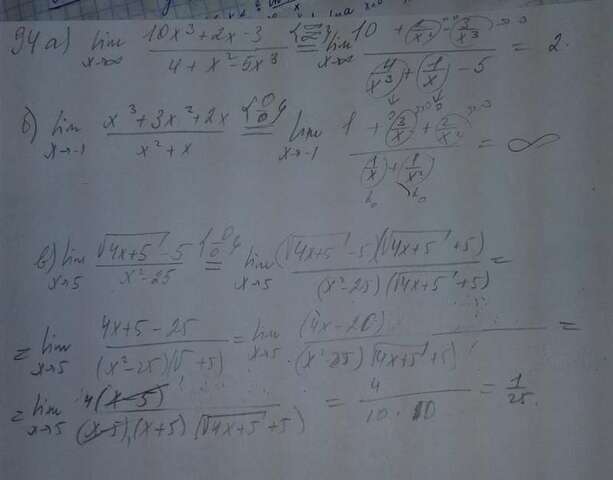 94 а) lim x→∞ (10x³+2x-3)/(4+x²-5x³) {∞/∞} = lim x→∞ (10 + 2/x² - 3/x³)/(4/x³ + 1/x - 5) = 2.
б) lim x→-1 (x³+3x²+2x)/(x²+x) {0/0} = lim x→-1 (1 + 3/x + 2/x²)/(1/x + 1/x²) = ∞
в) lim x→5 (√(4x+5) - 5)/(x²-25) {0/0} = lim x→5 (√(4x+5) - 5)(√(4x+5) + 5)/((x²-25)(√(4x+5) + 5)) =
= lim x→5 (4x+5-25)/((x²-25)(√ +5)) = lim x→5 (4x-20)/((x²-25)(√(4x+5) + 5)) =
= lim x→5 4(x-5)/((x-5)(x+5)(√(4x+5) + 5)) = 4/(10·10) = 1/25.